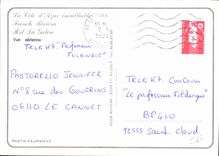 La Côte d'Azur inoubliable
French Riviera
Port La Galère
Vue aérienne
TELE K7 "Professeur
FOLDINGUE"
PASTORELLO JENNIFER
N°8 rue des GOURRINS
06110 LE CANNET
TELE K7 Concours
"Le professeur Foldingue"
BP410
92553 Saint. Cloud